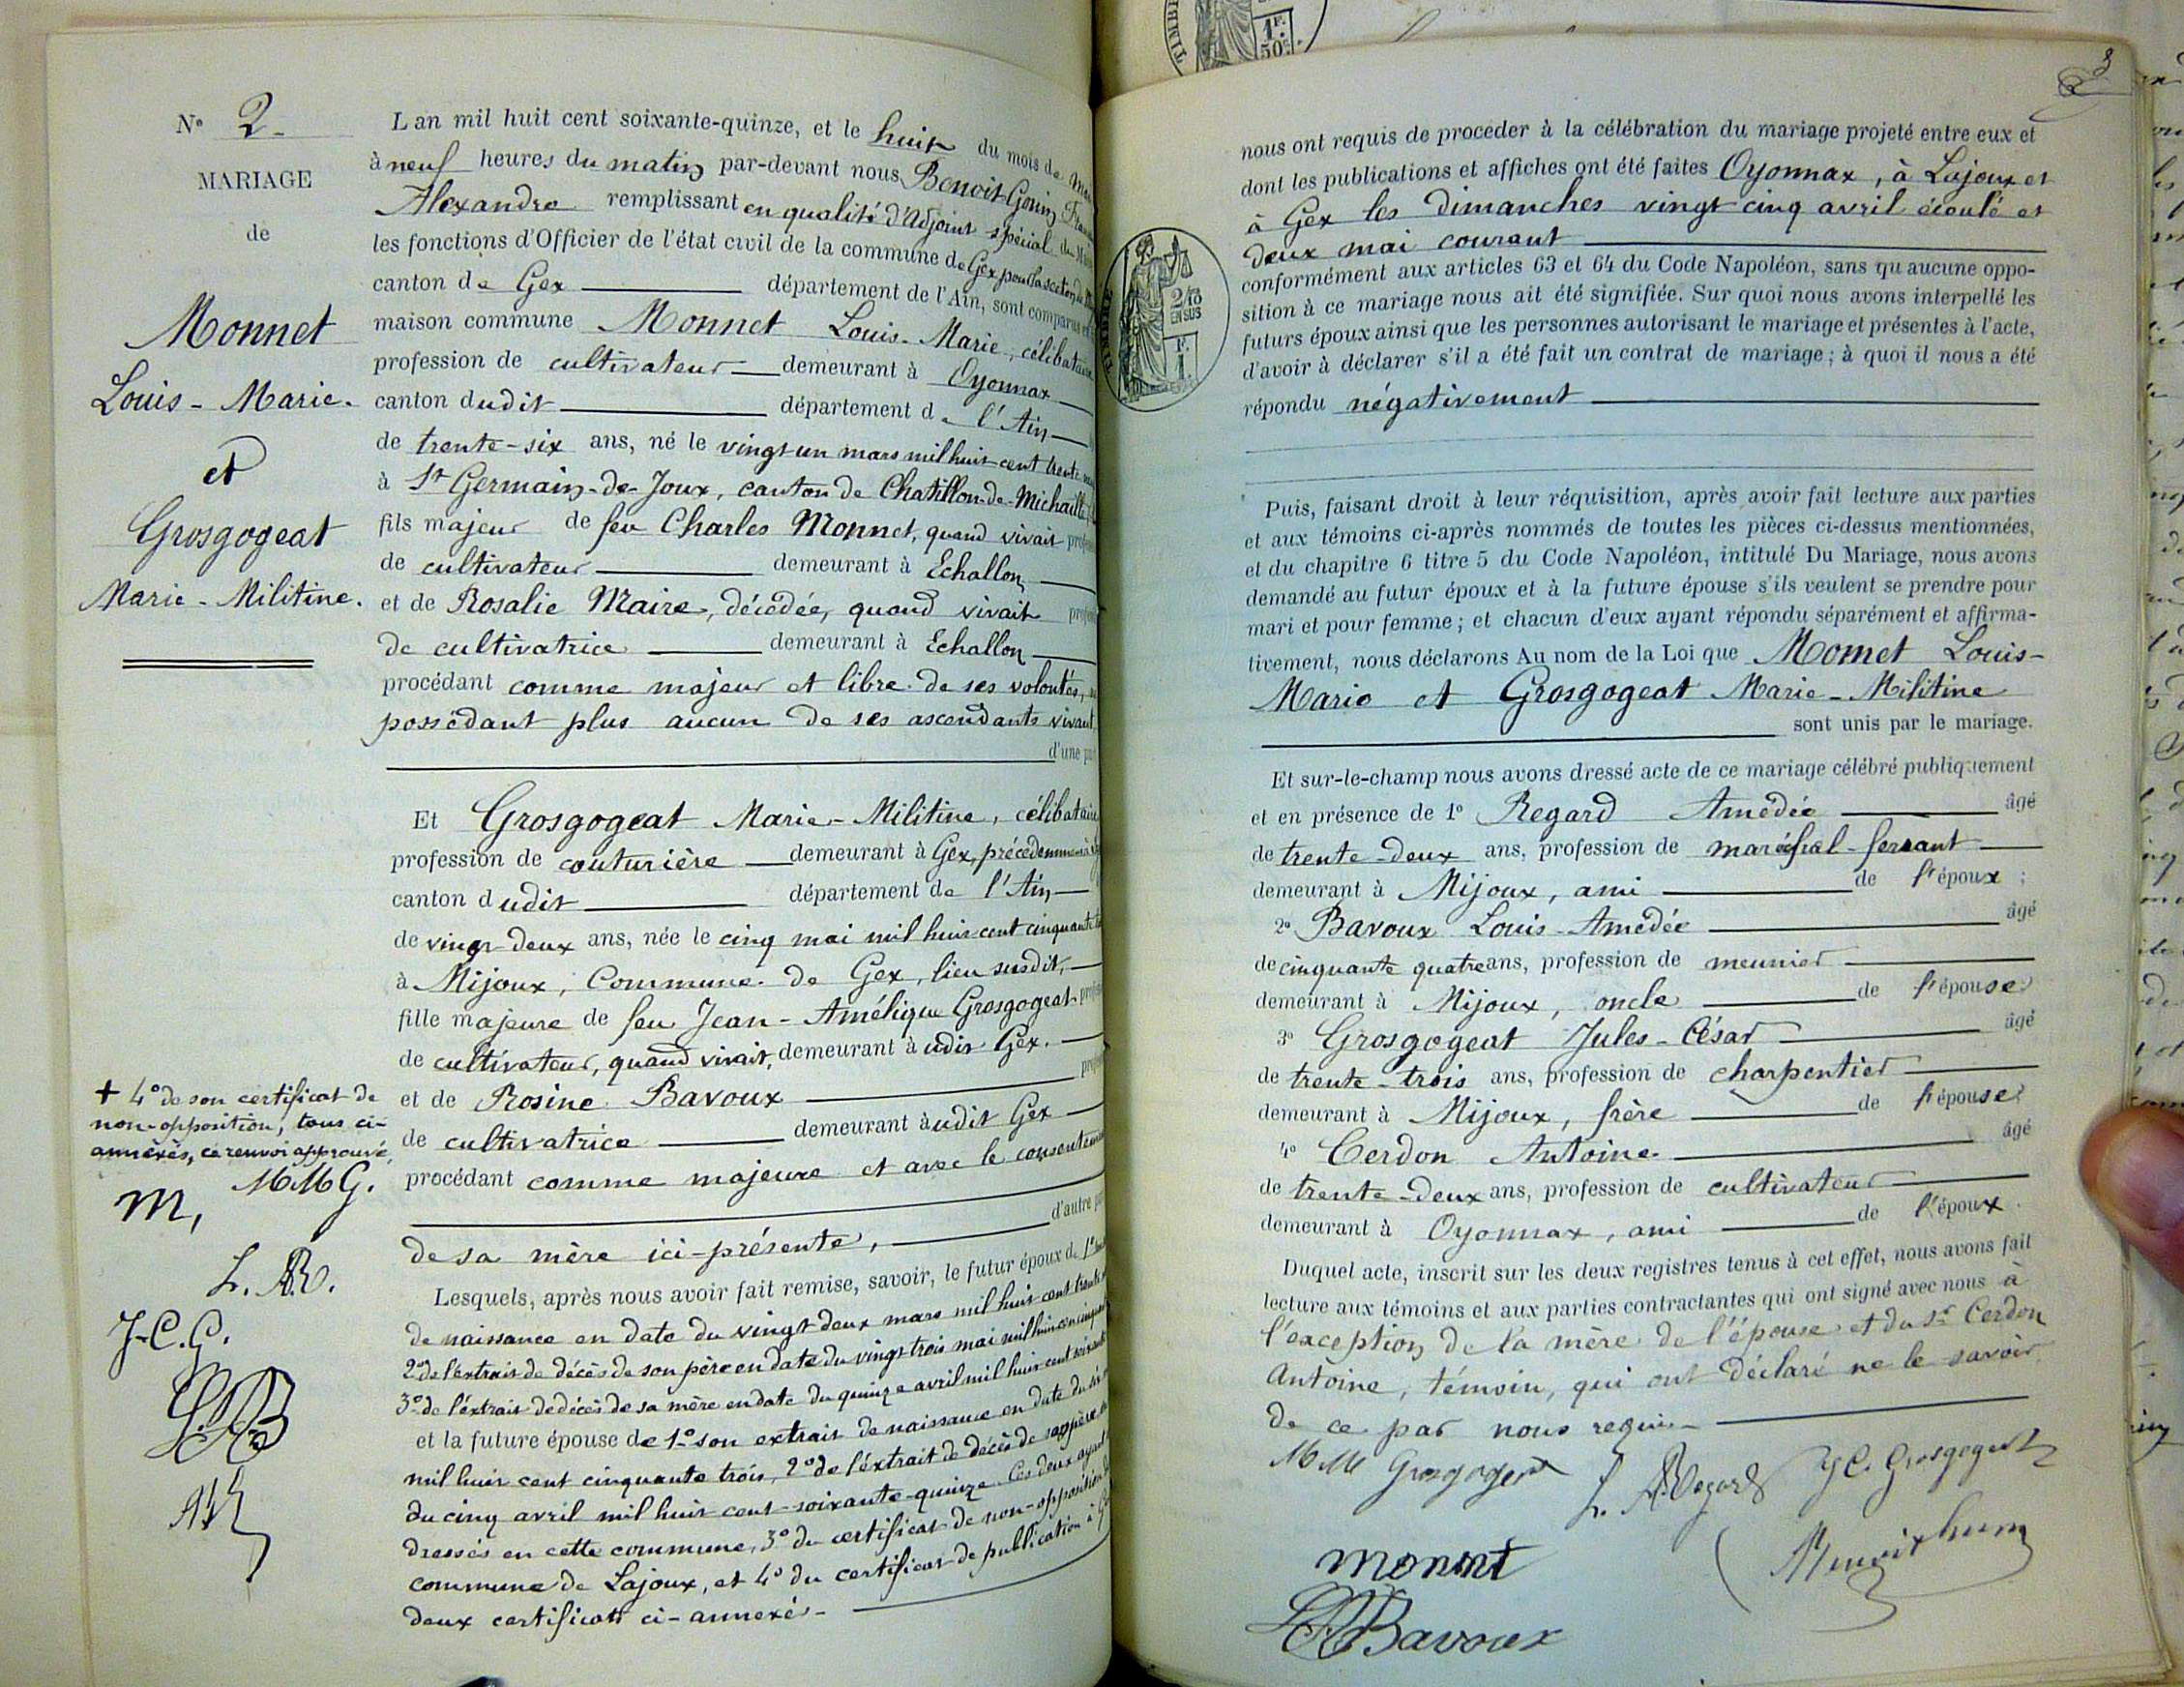 N° 2
MARIAGE
de
Monnet
Louis-Marie.
et
Grosgogeat
Marie-Militine.
L'an mil huit cent soixante-quinze, et le huit du mois de
à neuf heures du matin par-devant nous, Benoit-Gonin
Alexandre remplissant en qualité d'Adjoint spécial
les fonctions d'Officier de l'état civil de la commune de Gex pour la section
canton de Gex département de l'Ain, sont comparus
maison commune Monnet Louis-Marie, célibataire
profession de cultivateur demeurant à Oyonnax
canton dudit département de l'Ain
de trente-six ans, né le vingt un mars mil huit cent trente
à St Germain-de-Joux, canton de Chatillon-de-Michaille
fils majeur de feu Charles Monnet, quand vivait
de cultivateur demeurant à Echallon
et de Rosalie Maire, décédée, quand vivait
de cultivatrice demeurant à Echallon
procédant comme majeur et libre de ses volontés,
possédant plus aucun de ses ascendants vivant
d'une
Et Grosgogeat Marie-Militine, célibataire
profession de couturière demeurant à Gex, précédemment à
canton dudit département de l'Ain
de vingt-deux ans, née le cinq mai mil huit cent cinquante
à Mijoux, Commune de Gex, lieu susdit,
fille majeure de feu Jean-Amélique Grosgogeat
de cultivateur, quand vivait, demeurant audit Gex.
et de Rosine Bavoux
de cultivatrice demeurant audit Gex
procédant comme majeure et avec le consentement
d'autre
de sa mère ici-présente,
Lesquels, après nous avoir fait remise, savoir, le futur époux de 1°
de naissance en date du vingt-deux mars mil huit cent trente
2° de l'extrait de décès de son père en date du vingt trois mai mil huit cent
3° de l'extrait de décès de sa mère en date du quinze avril mil huit cent
et la future épouse de 1° son extrait de naissance en date du
mil huit cent cinquante trois, 2° de l'extrait de décès de
du cinq avril mil huit cent-soixante-quinze. Ces deux
dressés en cette commune, 3° du certificat de non-opposition
commune de Lajoux, et 4° du certificat de publication à
deux certificats ci-annexés-
+ 4° de son certificat de
non-opposition, tous ci-
annexés, ce renvoi approuvé,
M.M.G.
M,
L.A.R.
J-C.G.
nous ont requis de procéder à la célébration du mariage projeté entre eux et
dont les publications et affiches ont été faites Oyonnax, à Lajoux et
à Gex les dimanches vingt cinq avril écoulé et
deux mai courant
conformément aux articles 63 et 64 du Code Napoléon, sans qu'aucune oppo-
sition à ce mariage nous ait été signifiée. Sur quoi nous avons interpellé les
futurs époux ainsi que les personnes autorisant le mariage et présentes à l'acte,
d'avoir à déclarer s'il a été fait un contrat de mariage; à quoi il nous a été
répondu négativement
Puis, faisant droit à leur réquisition, après avoir fait lecture aux parties
et aux témoins ci-après nommés de toutes les pièces ci-dessus mentionnées,
et du chapitre 6 titre 5 du Code Napoléon, intitulé Du Mariage, nous avons
demandé au futur époux et à la future épouse s'ils veulent se prendre pour
mari et pour femme; et chacun d'eux ayant répondu séparément et affirma-
tivement, nous déclarons Au nom de la Loi que Monnet Louis-
Marie et Grosgogeat Marie-Militine
sont unis par le mariage.
Et sur-le-champ nous avons dressé acte de ce mariage célébré publiquement
et en présence de 1° Regard Amédée âgé
de trente-deux ans, profession de maréchal-ferrant
demeurant à Mijoux, ami de l'époux;
2° Bavoux Louis-Amédée âgé
de cinquante quatre ans, profession de meunier
demeurant à Mijoux, oncle de l'épouse;
3° Grosgogeat Jules-César âgé
de trente-trois ans, profession de charpentier
demeurant à Mijoux, frère de l'épouse;
4° Cerdon Antoine âgé
de trente-deux ans, profession de cultivateur
demeurant à Oyonnax, ami de l'époux.
Duquel acte, inscrit sur les deux registres tenus à cet effet, nous avons fait
lecture aux témoins et aux parties contractantes qui ont signé avec nous à
l'exception de la mère de l'épouse et du Sr Cerdon
Antoine, témoin, qui ont déclaré ne le savoir
de ce par nous requis-
M M Grosgogeat
L. A Regard
J C. Grosgogeat
monnet
Benoit Gonin
Bavoux
2/10
EN SUS
1F.
50c.